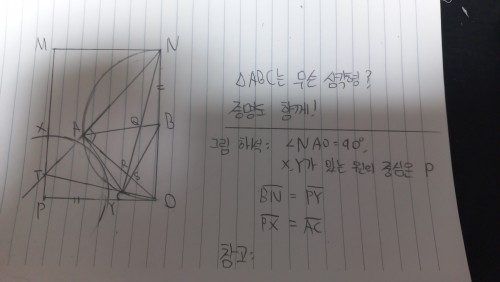 M N
△ABC는 무슨 삼각형?
증명도 함께!
X A Q B
그림 해석: ∠NAO=90°,
X,Y가 있는 원의 중심은 P
T R S
P Y O
BN = PY
PX = AC
참고: